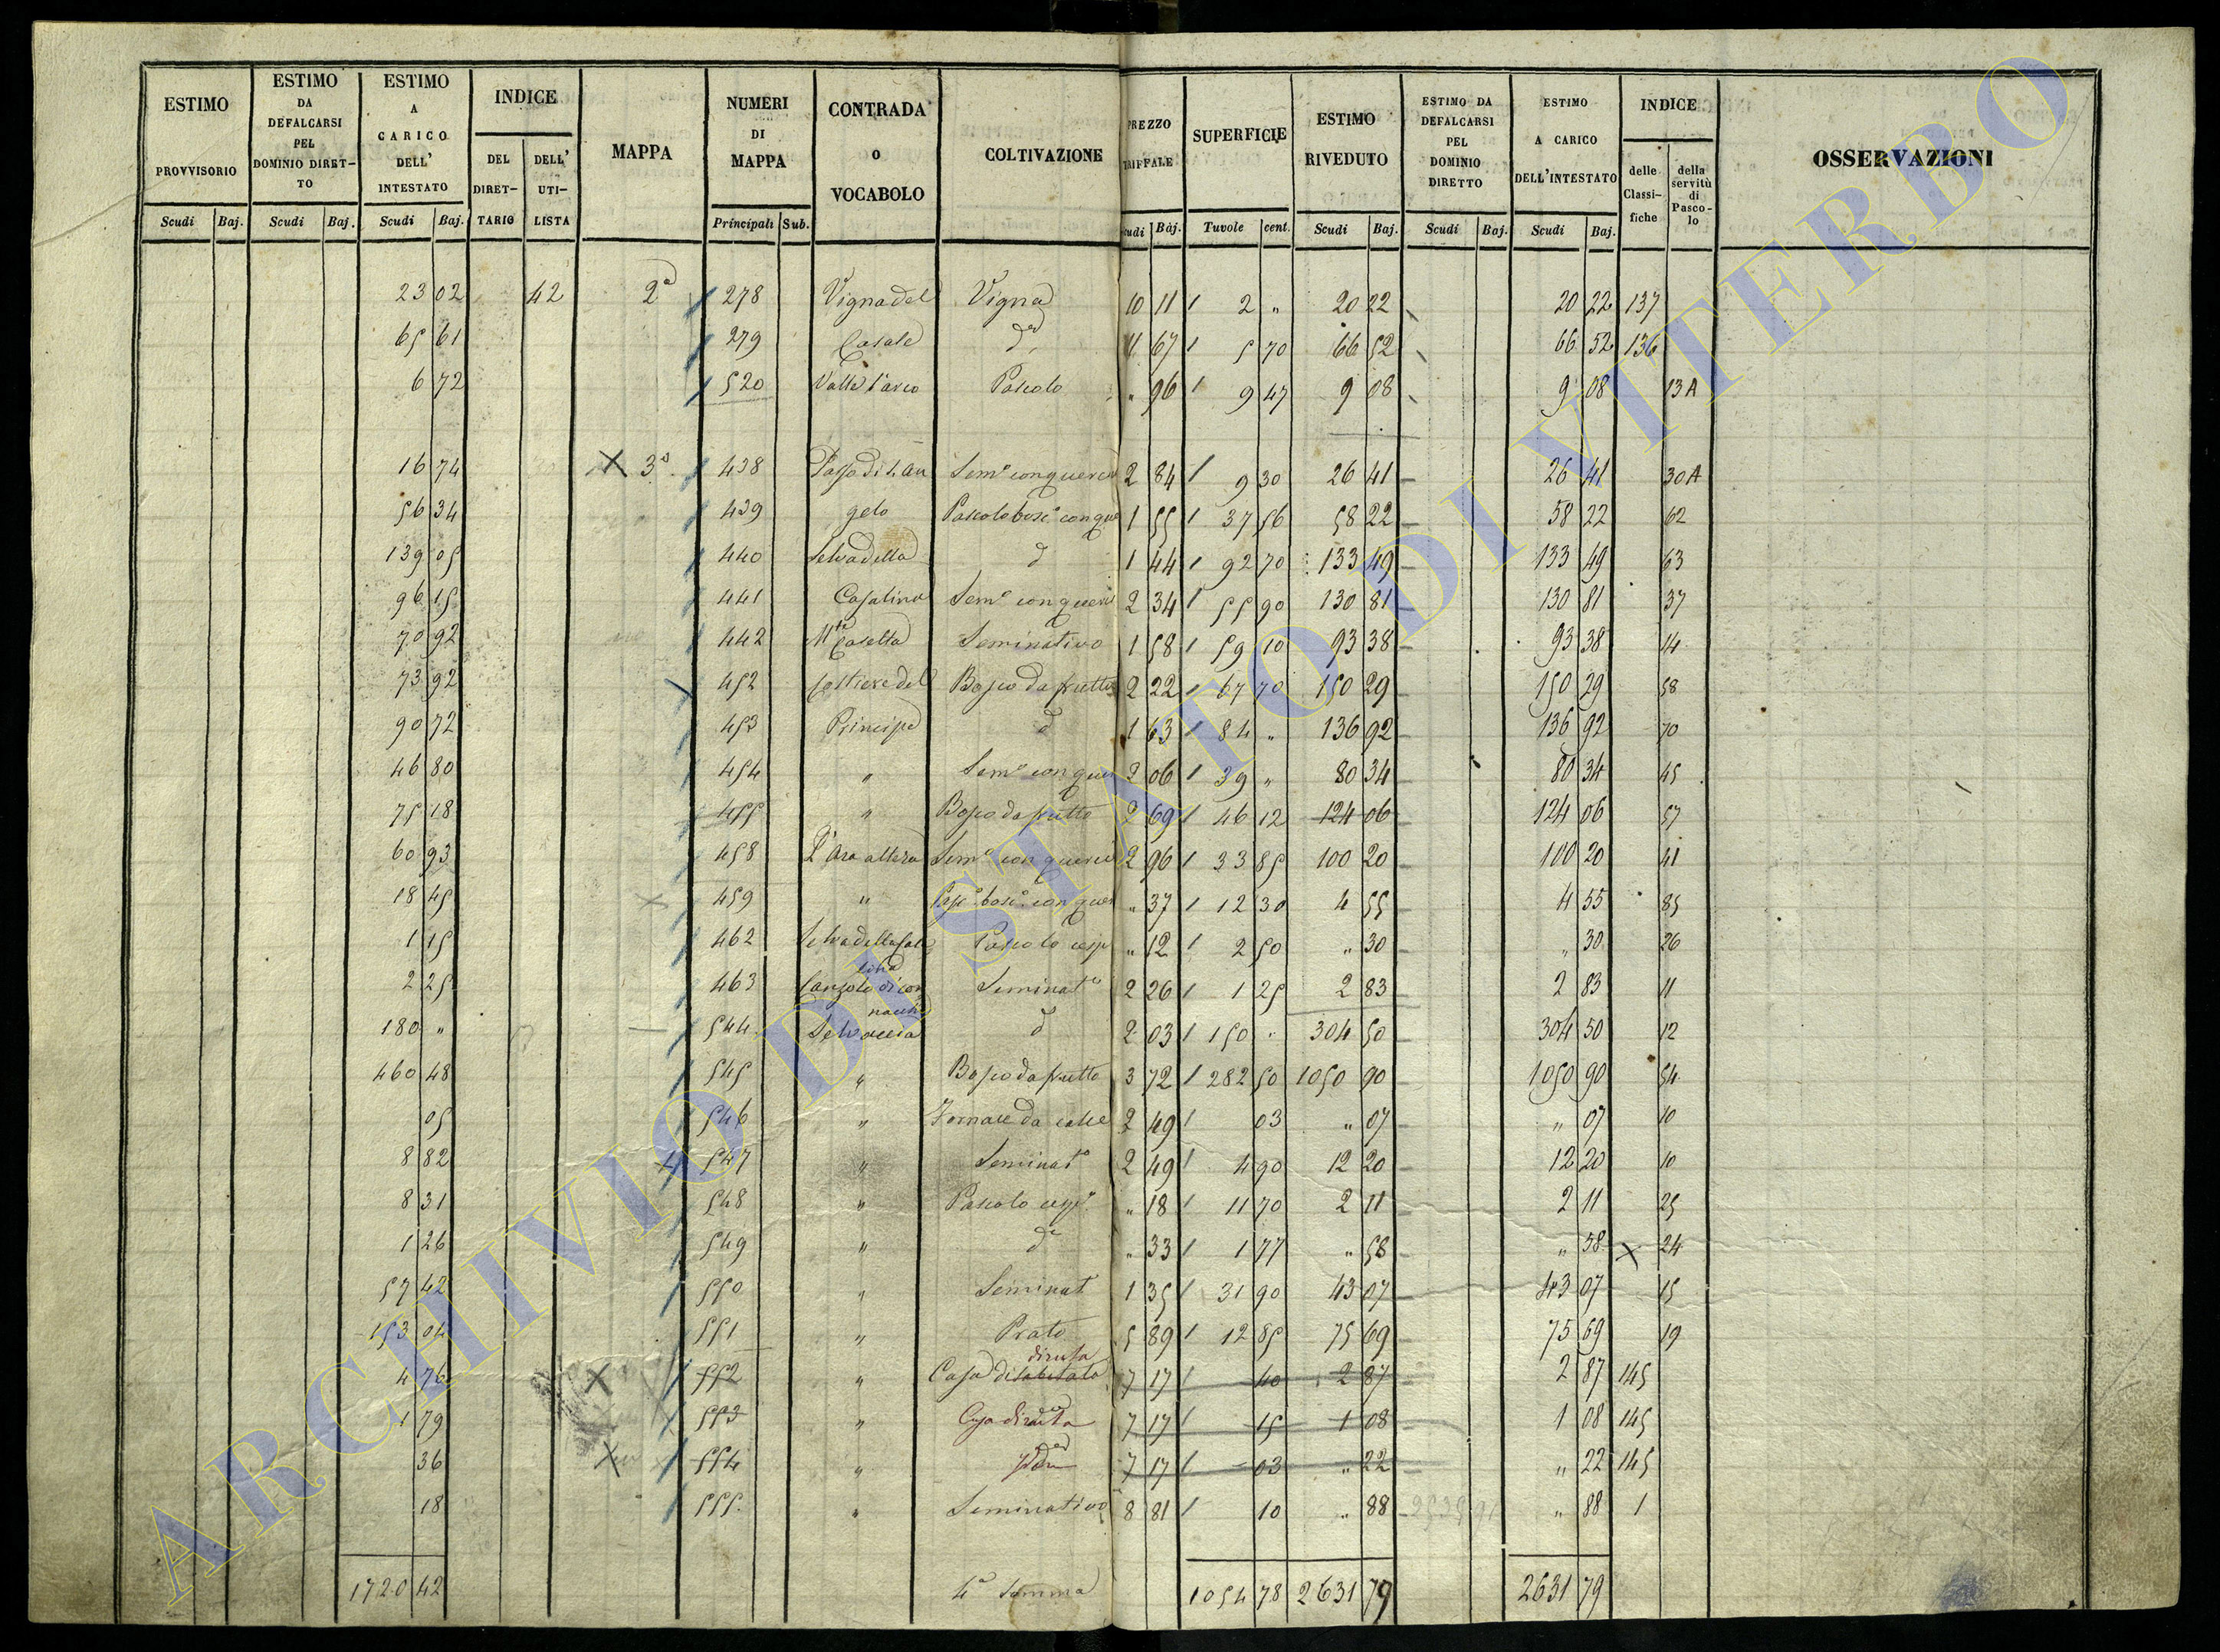 ESTIMO PROVVISORIO Scudi Baj.
ESTIMO DA DEFALCARSI PEL DOMINIO DIRET-TO Scudi Baj.
ESTIMO A CARICO DELL' INTESTATO Scudi Baj.
INDICE DEL DIRET-TARIO DELL' UTI-LISTA
MAPPA
NUMERI DI MAPPA Principali Sub.
CONTRADA O VOCABOLO
COLTIVAZIONE
PREZZO TARIFFALE Scudi Baj.
SUPERFICIE Tavole cent.
ESTIMO RIVEDUTO Scudi Baj.
ESTIMO DA DEFALCARSI PEL DOMINIO DIRETTO Scudi Baj.
ESTIMO A CARICO DELL'INTESTATO Scudi Baj.
INDICE delle Classi-fiche della servitù di Pasco-lo
OSSERVAZIONI
23 02 42 2ª 278 Vigna del Vigna 10 11 2 " 20 22 20 22 137
65 61 279 Casale dª 11 67 5 70 66 52 66 52 136
6 72 520 Valle l'arco Pascolo " 96 9 47 9 08 9 08 13A
16 74 X 3ª 438 Passo di S. An Semº con querce 2 84 9 30 26 41 26 41 30A
56 34 439 gelo Pascolo boscº con que 1 55 37 56 58 22 58 22 62
139 05 440 Selva della d 1 44 92 70 133 49 133 49 63
96 15 441 Casalina Semº con querci 2 34 55 90 130 81 130 81 37
70 92 442 Mte Casetta Seminativo 1 58 59 10 93 38 93 38 14
73 92 452 Costiere del Bosco da frutto 2 22 67 70 150 29 150 29 58
90 72 453 Principe d 1 63 84 " 136 92 136 92 70
46 80 454 " Semº con quer 2 06 39 " 80 34 80 34 45
75 18 455 " Bosco da frutto 2 69 46 12 124 06 124 06 57
60 93 458 L'Ara alta Semº con querci 2 96 33 85 100 20 100 20 41
18 45 X 459 " boscº con quer " 37 12 30 4 55 4 55 85
1 15 462 Selva della Casa Pascolo cesp " 12 2 50 " 30 " 30 26
lina
2 25 463 Seminatº 2 26 1 25 2 83 2 83 11
180 " 544 Selvaccia d 2 03 150 " 304 50 304 50 12
460 48 545 " Bosco da frutto 3 72 282 50 1050 90 1050 90 54
05 546 " Fornace da calce 2 49 03 " 07 " 07 10
8 82 547 " Seminatº 2 49 4 90 12 20 12 20 10
8 31 548 " Pascolo cespº " 18 11 70 2 11 2 11 25
1 26 549 " dº " 33 1 77 " 58 " 58 X 24
57 42 550 " Seminat 1 35 31 90 43 07 43 07 15
153 04 551 " Prato 5 89 12 85 75 69 75 69 19
diruta
4 76 X 552 " Casa disabitata 7 17 40 2 87 2 87 145
1 79 553 " Casa diruta 7 17 15 1 08 1 08 145
36 X 554 " 7 17 03 " 22 " 22 145
18 555 " Seminativo 8 81 10 " 88 " 88 1
1720 42 4ª Somma 1054 78 2631 79 2631 79
ARCHIVIO DI STATO DI VITERBO